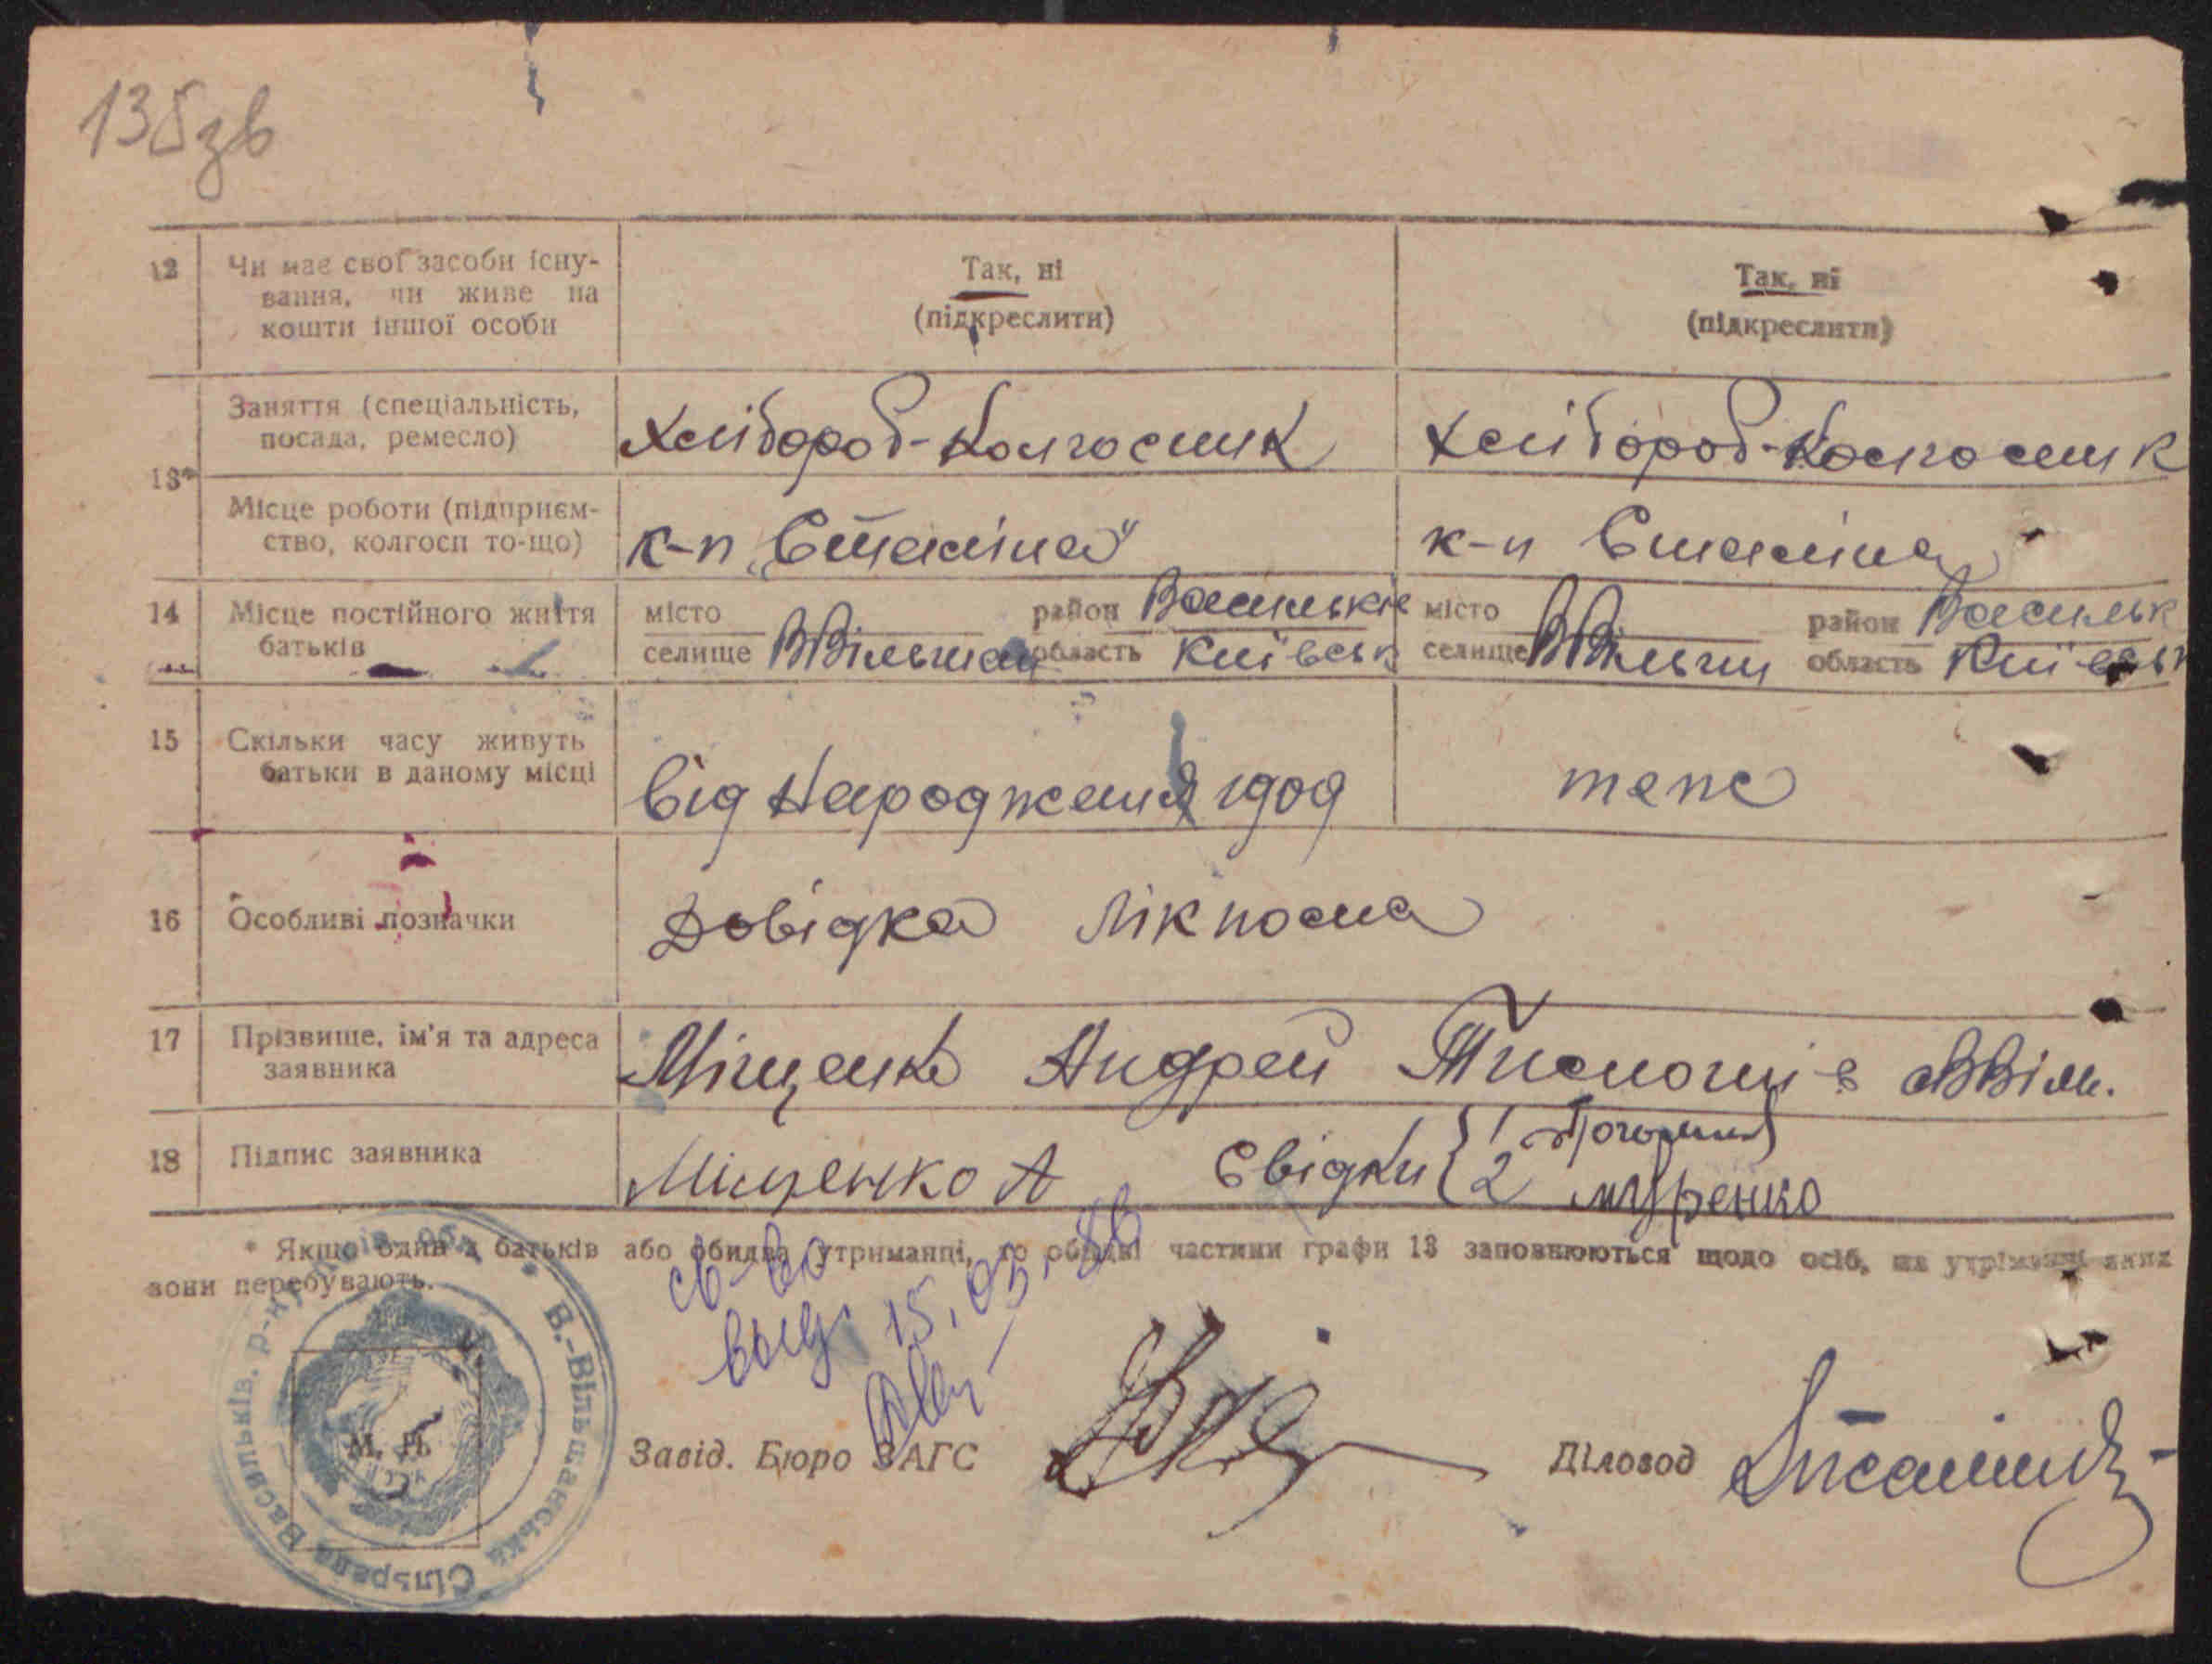 135зв
12 Чи має свої засоби існу-
вання, чи живе на
кошти іншої особи
Так, ні
(підкреслити)
Так, ні
(підкреслити)
13*
Заняття (спеціальність,
посада, ремесло)
Хлібороб-Колгосник
Хлібороб-Колгосник
Місце роботи (підприєм-
ство, колгосп то-що)
к-п „Сталіна"
к-п Сталіна
14 Місце постійного життя
батьків
місто
селище ВВільшан
район Васильків
область Київськ
місто
селище ВВільш
район Васильк
область Київськ
15 Скільки часу живуть
батьки в даному місці
від Народження 1909
теж
16 Особливі позначки
Довідка Лікпома
17 Прізвище, ім'я та адреса
заявника
Міщенко Андрей с ВВіль.
18 Підпис заявника
Міщенко А Свідки { 1
2 Муренко
* Якщо один з батьків або обидва утриманці, то обидві частини графи 13 заповнюються щодо осіб, на утриманні яких
вони перебувають.
св-во
выд. 15.05.
М. П.
В.-Вільшанська Сільрада Васильків. р-ну Київ. обл.
Завід. Бюро ЗАГС
Діловод